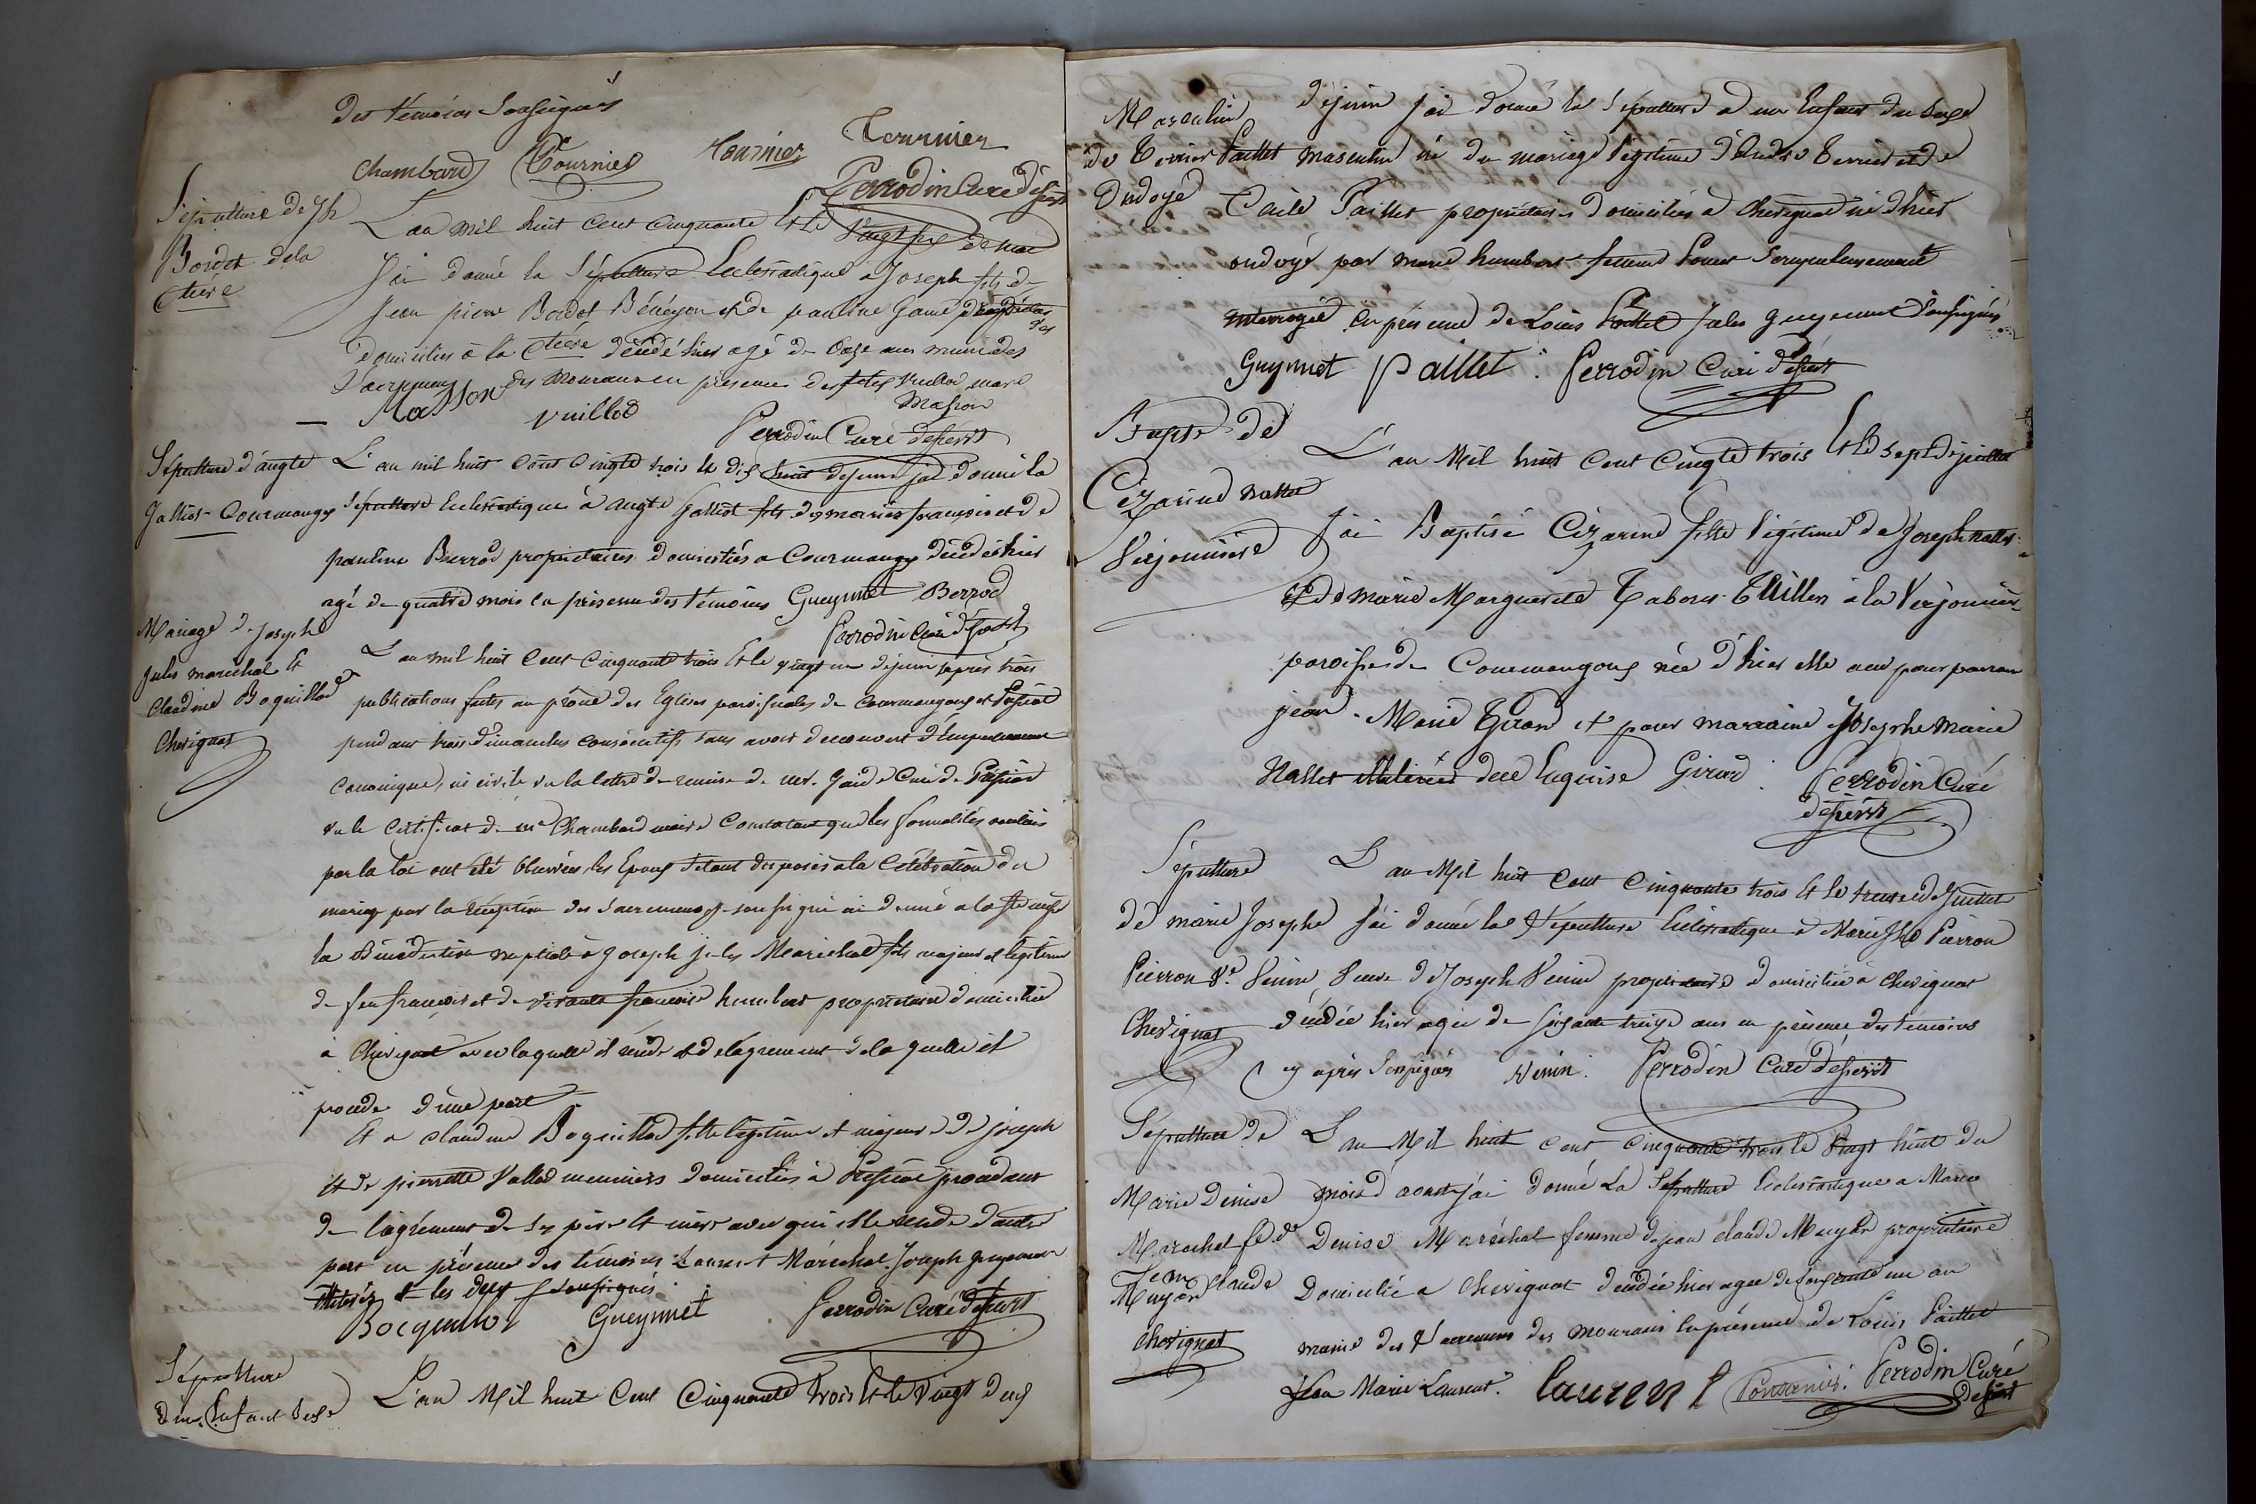 des témoins Soussignés
Chambard Tournier Tournier Tournier
Perrodin Curé d'
Sépulture de Jh
Bordet de la
Ctière
L'an mil huit cent cinquante et le Vingt six de mai
J'ai donné la Sépulture Eclesiastique a Joseph fils de
Jean pierre Bordet Bénéyon et de pauline
domiciliés à la Ctière décédé hier agé de onze ans muni des
des Mourans en présence de Vuillod marc
Masson
Masson Vuillod
Perrodin Curé
Sépulture d'augte
Galliot Courmangy
L'an mil huit cent cinqte trois le dix huit de juin j'ai donné la
sépulture Eclesiastique à augte Galliot fils des mariés françois et de
pauline Berrod propriétaires domiciliés a Courmangy décédé hier
agé de quatre mois en présence des témoins Gueynnet Berrod
Perrodin Curé
Mariage de Joseph
jules maréchal Et
Claudine Boquillod
Chevignat
L'an mil huit Cent Cinquante trois Et le vingt un de juin après trois
publications faites au prône des Eglises paroissiales de Courmangoux et
pendant trois dimanches consécutifs sans avoir decouvert d'Empechement
Canonique, ni civile vu la lettre de remise de mr. Curé de
vu le Certificat de mr Chambard maire Constatant que les formalités
par la loi ont été observées, les Epoux s'étant disposés a la Célébration du
mariage par la réception des Sacremens, soussigné ai donné a la Ste messe
la Bénédiction nuptiale à Joseph jules Maréchal fils majeur et légitime
de feu françois et de vivante françoise humbert propriétaire domiciliée
à Chevignat avec laquelle il réside et de l'agrément de la quelle il
procede d'une part
Et a claudine Boquillod fille légitime et majeure de joseph
Et de pierrette Vallod meuniers domiciliés à procedant
de l'agrément de ses père Et mère avec qui elle reside d'autre
part en présence des témoins Laurent Maréchal Joseph
illitérés Et les deux soussignés
Bocquillod Gueynnet Perrodin Curé
Sépulture
d'un Enfant Sexe
L'an Mil huit Cent Cinquante trois Et le Vingt deux
Masculin
de Terrier Paillet
Ondoyé
de juin j'ai donné la Sépulture a un Enfant du sexe
masculin né du mariage légitime d'André Terrier et de
Paillet propriétaires domiciliés a Chevignat né d'hier
ondoyé par marie humbert femme
interrogée en présence de Louis Paillet Jules Soussignés
Gueynnet Paillet Perrodin Curé
Bapte. de
Cézarine Nallet
Verjonnière
L'an Mil huit Cent Cinqte trois Et le sept de juillet
J'ai Baptisé Cézarine fille légitime de Joseph Nallet
Et de marie Marguerite à la Verjonnière
paroisse de Courmangoux née d'hier elle a eu pour parrain
jean Marie et pour marraine Josephe Marie
Nallet illitérés Girard Perrodin Curé
Sépulture
de marie Josephe
Pierron Ve. Venin
Chevignat
L'an Mil huit Cent Cinquante trois Et le treize de Juillet
J'ai donné la Sépulture Eclésiastique a Marie Jhe Pierron
Veuve de Joseph Venin propriétaire domiciliée à Chevignat
décédée hier agée de soixante treize ans en présence des témoins
cy après Soussignés Venin. Perrodin Curé
Sépulture de
Marie Denise
Marechal fe de
Jean Claude
Chevignat
L'an Mil huit cent cinquante trois le Vingt huit du
mois d'aoust j'ai donné La Sépulture Eclesiastique a Marie
Denise Maréchal femme de jean claude propriétaire
Domicilié a Chevignat décédée hier agée de soixante un an
munie des Sacremens des mourans en présence de Louis Paillet
Jean Marie Laurent. laurent Perrodin Curé